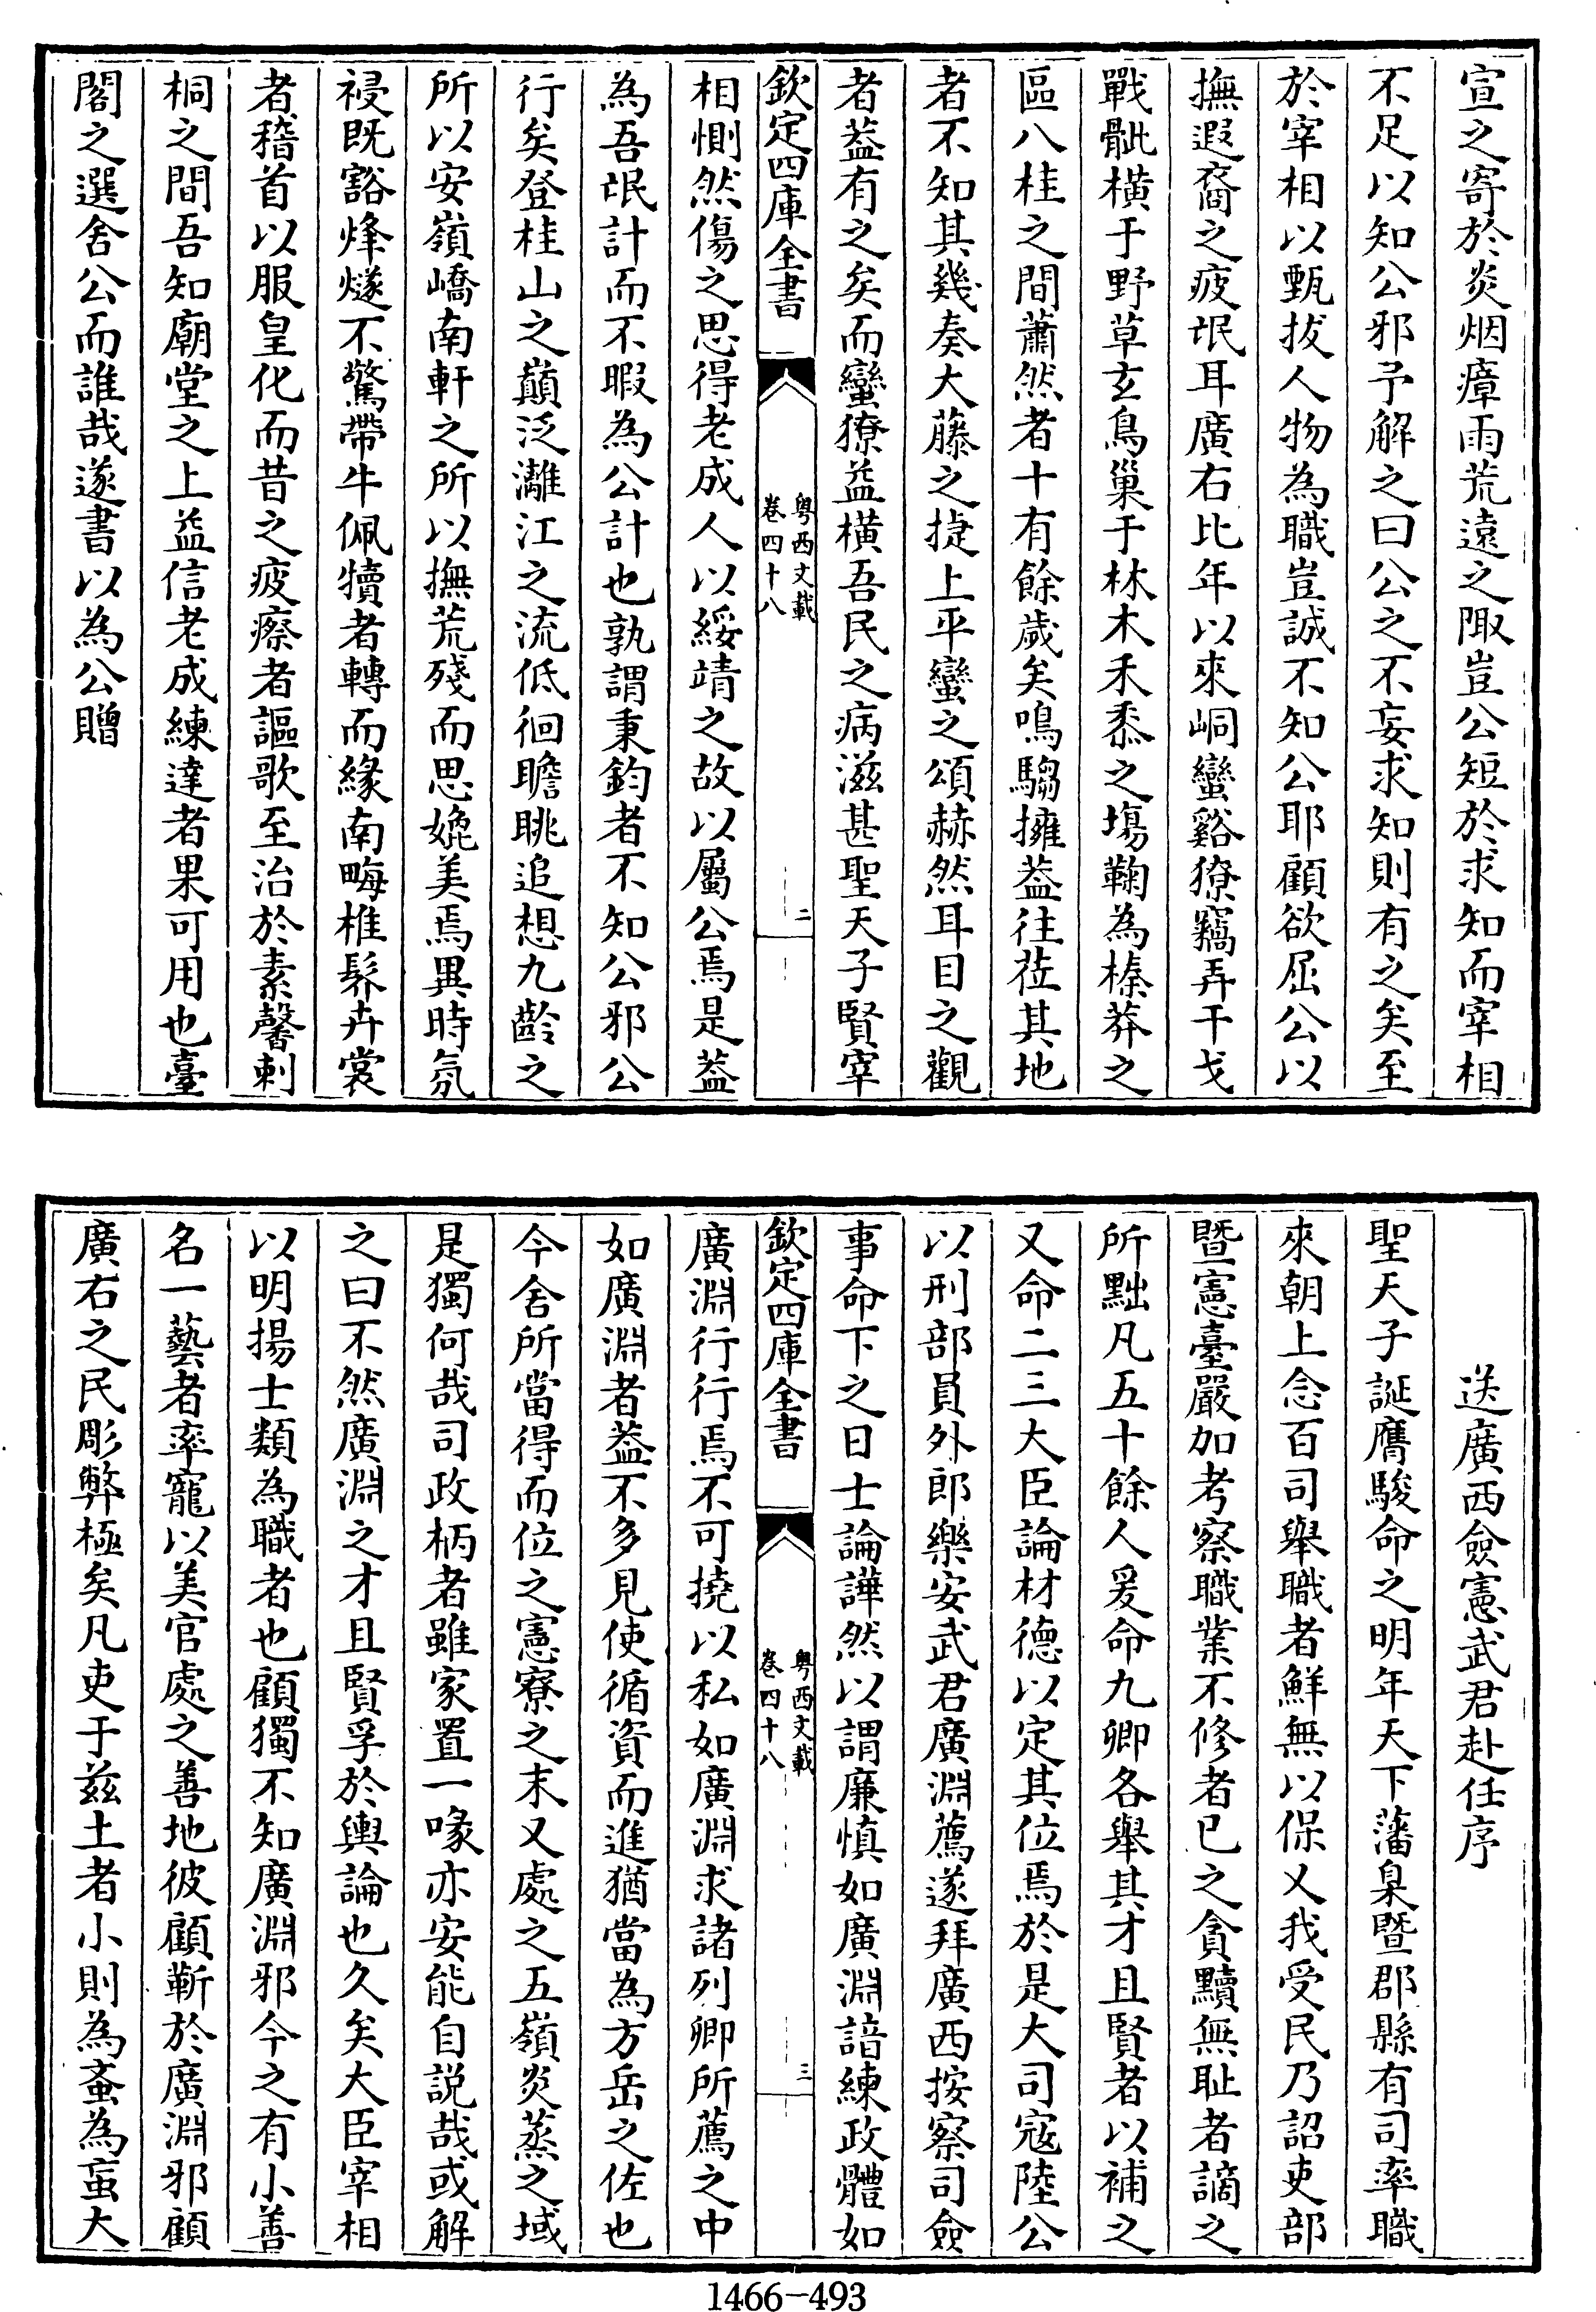 宣之寄於炎烟瘴雨荒遠之陬豈公短於求知而宰相
不足以知公邪予解之曰公之不妄求知則有之矣至
於宰相以甄拔人物為職豈誠不知公耶顧欲屈公以
撫遐裔之疲氓耳廣右比年以來峒蠻谿獠竊弄干戈
戰骴橫于野草玄鳥巢于林木禾黍之塲鞠為榛莽之
區八桂之間蕭然者十有餘歲矣鳴騶擁葢往莅其地
者不知其幾奏大藤之捷上平蠻之頌赫然耳目之觀
者葢有之矣而蠻獠益橫吾民之病滋甚聖天子賢宰
欽定四庫全書
粤西文載
卷四十八
二
相惻然傷之思得老成人以綏靖之故以屬公焉是葢
為吾氓計而不暇為公計也孰謂秉鈞者不知公邪公
行矣登桂山之巔泛灕江之流低徊瞻眺追想九齡之
所以安嶺嶠南軒之所以撫荒殘而思媲美焉異時氛
祲既豁烽燧不驚帶牛佩犢者轉而緣南畮椎髻卉裳
者稽首以服皇化而昔之疲瘵者謳歌至治於素馨刺
桐之間吾知廟堂之上益信老成練達者果可用也臺
閣之選舍公而誰哉遂書以為公贈
送廣西僉憲武君赴任序
聖天子誕膺駿命之明年天下藩臬暨郡縣有司率職
來朝上念百司舉職者鮮無以保乂我受民乃詔吏部
暨憲臺嚴加考察職業不修者已之貪黷無恥者謫之
所黜凡五十餘人爰命九卿各舉其才且賢者以補之
又命二三大臣論材德以定其位焉於是大司寇陸公
以刑部員外郎樂安武君廣淵薦遂拜廣西按察司僉
事命下之日士論譁然以謂廉慎如廣淵諳練政體如
欽定四庫全書
粤西文載
卷四十八
三
廣淵行行焉不可撓以私如廣淵求諸列卿所薦之中
如廣淵者葢不多見使循資而進猶當為方岳之佐也
今舍所當得而位之憲寮之末又處之五嶺炎蒸之域
是獨何哉司政柄者雖家置一喙亦安能自説哉或解
之曰不然廣淵之才且賢孚於輿論也久矣大臣宰相
以明揚士類為職者也顧獨不知廣淵邪今之有小善
名一藝者率寵以美官處之善地彼顧靳於廣淵邪顧
廣右之民彫弊極矣凡吏于兹土者小則為蚉為蝱大
1466-493